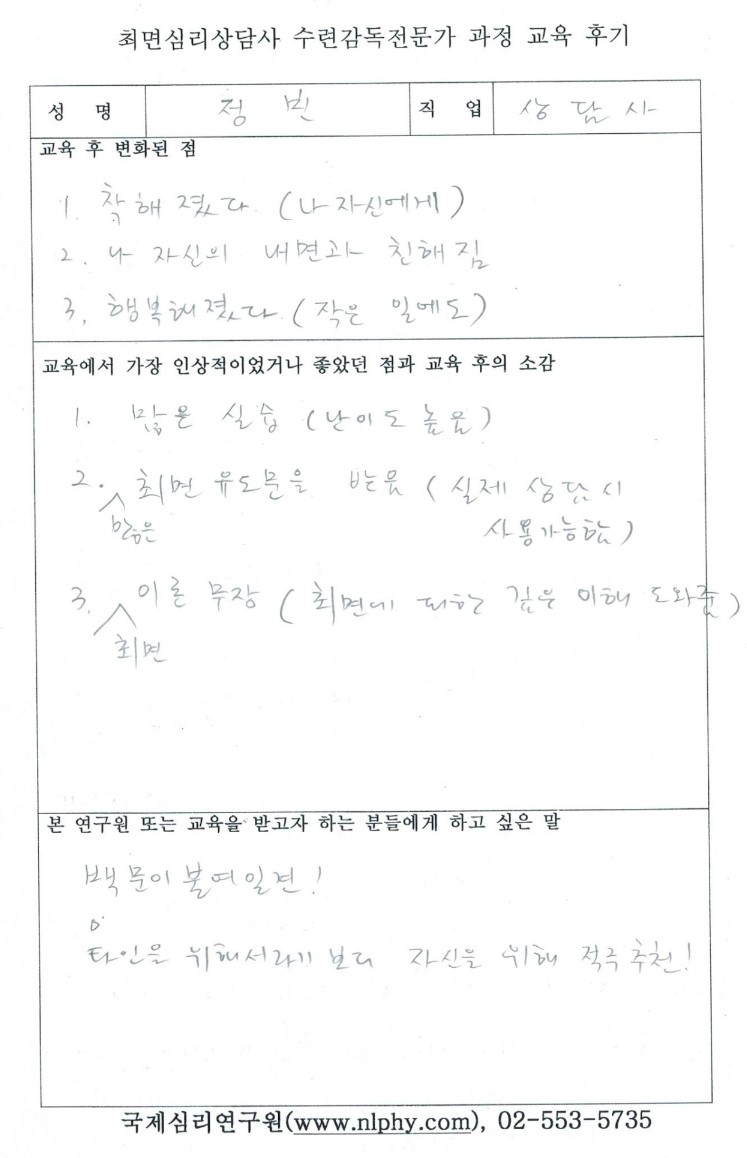 최면심리상담사 수련감독전문가 과정 교육 후기
성 명 정 빈 직 업 상 담 사
교육 후 변화된 점
1. 착해졌다. (나 자신에게)
2. 나 자신의 내면과 친해짐
3. 행복해졌다. (작은 일에도)
교육에서 가장 인상적이었거나 좋았던 점과 교육 후의 소감
1. 많은 실습 (난이도 높음)
2. 최면 유도문을 받음 (실제 상담시
많은
사용가능함)
3. 이론 무장 (최면에 대한 깊은 이해 도와줌)
최면
본 연구원 또는 교육을 받고자 하는 분들에게 하고 싶은 말
백문이 불여일견!
타인을 위해서라기 보다 자신을 위해 적극 추천!
국제심리연구원(www.nlphy.com), 02-553-5735